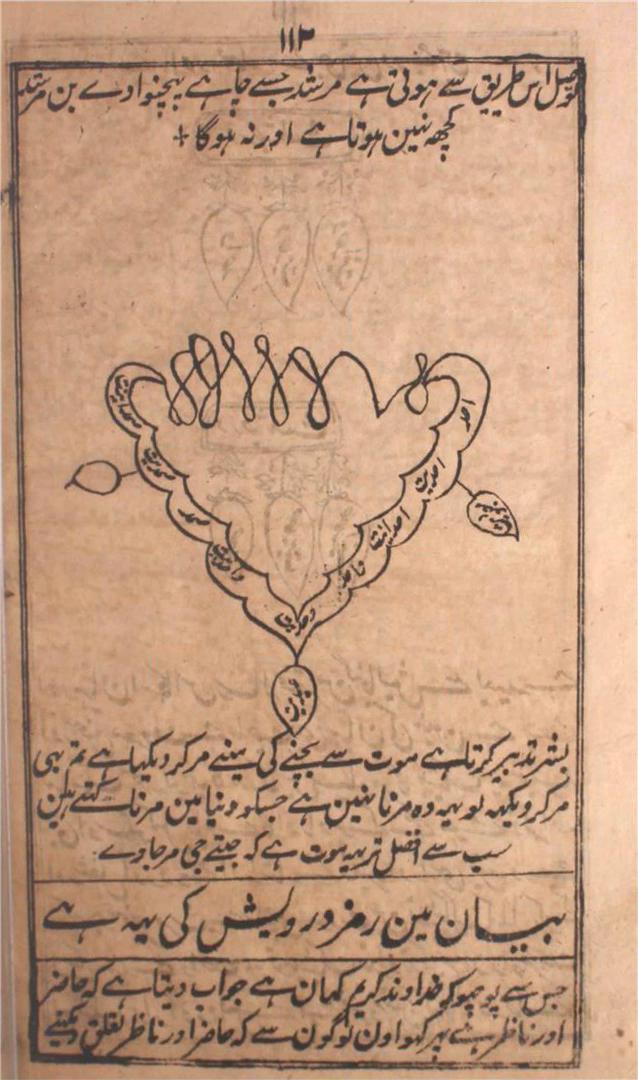 ۱۱۲
توصل اس طریق سے ہوتی ہے مرشد جسے چاہے پہچنوادے بن مرشد
کچھ نہین ہوتا ہے اور نہ ہوگا +
احد
احدیت
صمدیت
صمد
واحد
واحدیت
وحدیت
بشر تدبیر کرتا ہے موت سے بچنے کی ہمنے مرکر دیکھا ہے تم بھی
مرکر دیکھہ لو یہہ وہ مرنا نہین ہے جسکو دنیا مین مرنا کہتے ہین
سب سے افضل تر یہہ موت ہے کہ جیتے جی مرجاوے
بیان مین رمز درویش کی یہہ ہے
جس سے پوچھو کہ خداوند کریم کہان ہے جواب دیتا ہے کہ حاضر
اور ناظر ہے پہر کہو اون لوگون سے کہ حاضر اور ناظر تعلق دیکھنے